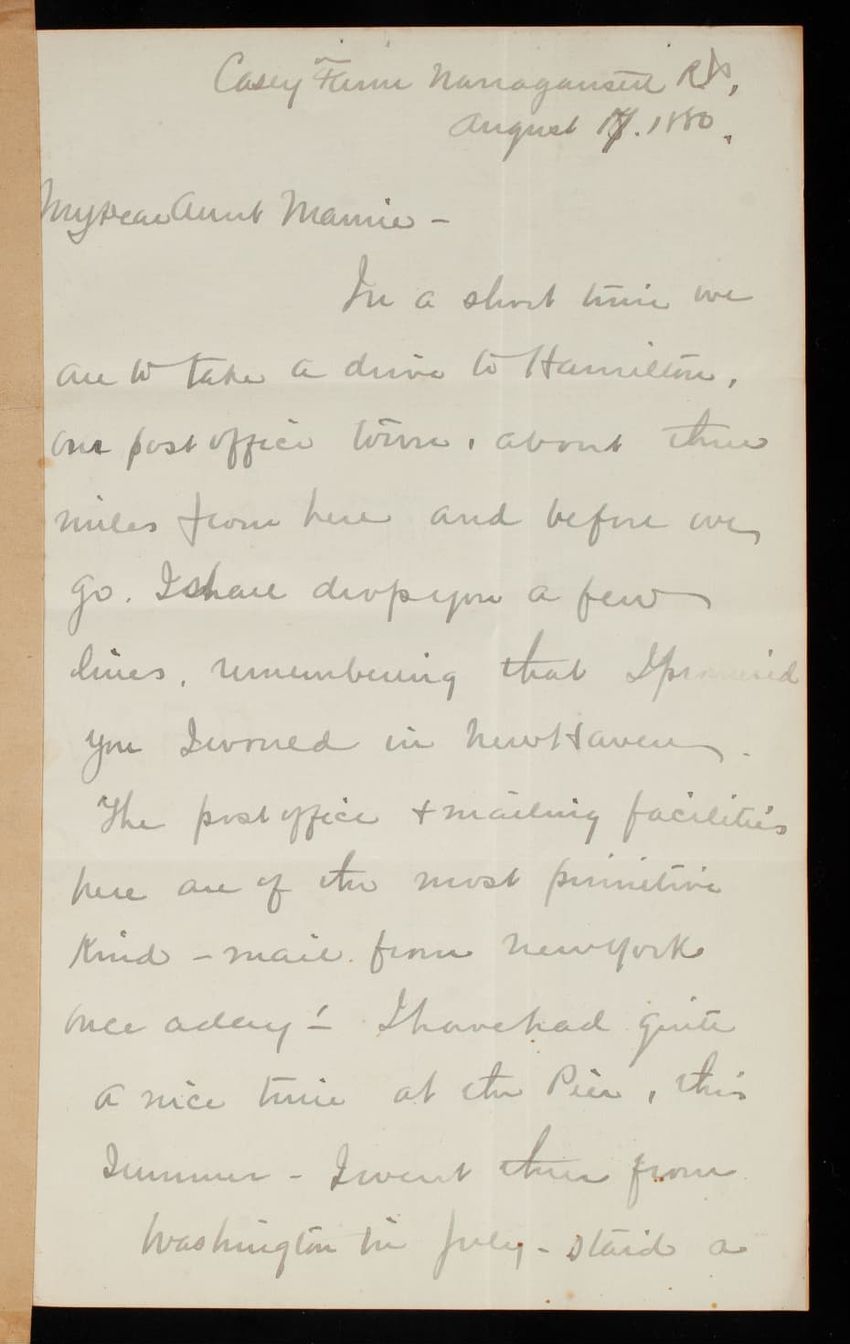 Casey Farm Narragansett R.I.,
August 17. 1880.
My dear Aunt Mamie -
In a short time we
are to take a drive to Hamilton,
our post office town, about three
miles from here and before we
go. I shall drop you a few
lines, remembering that I promised
you I would in New Haven.
The post office & mailing facilities
here are of the most primitive
kind - mail from New York
once a day! - I have had quite
a nice time at the Pier, this
summer - I went there from
Washington in July - staid a